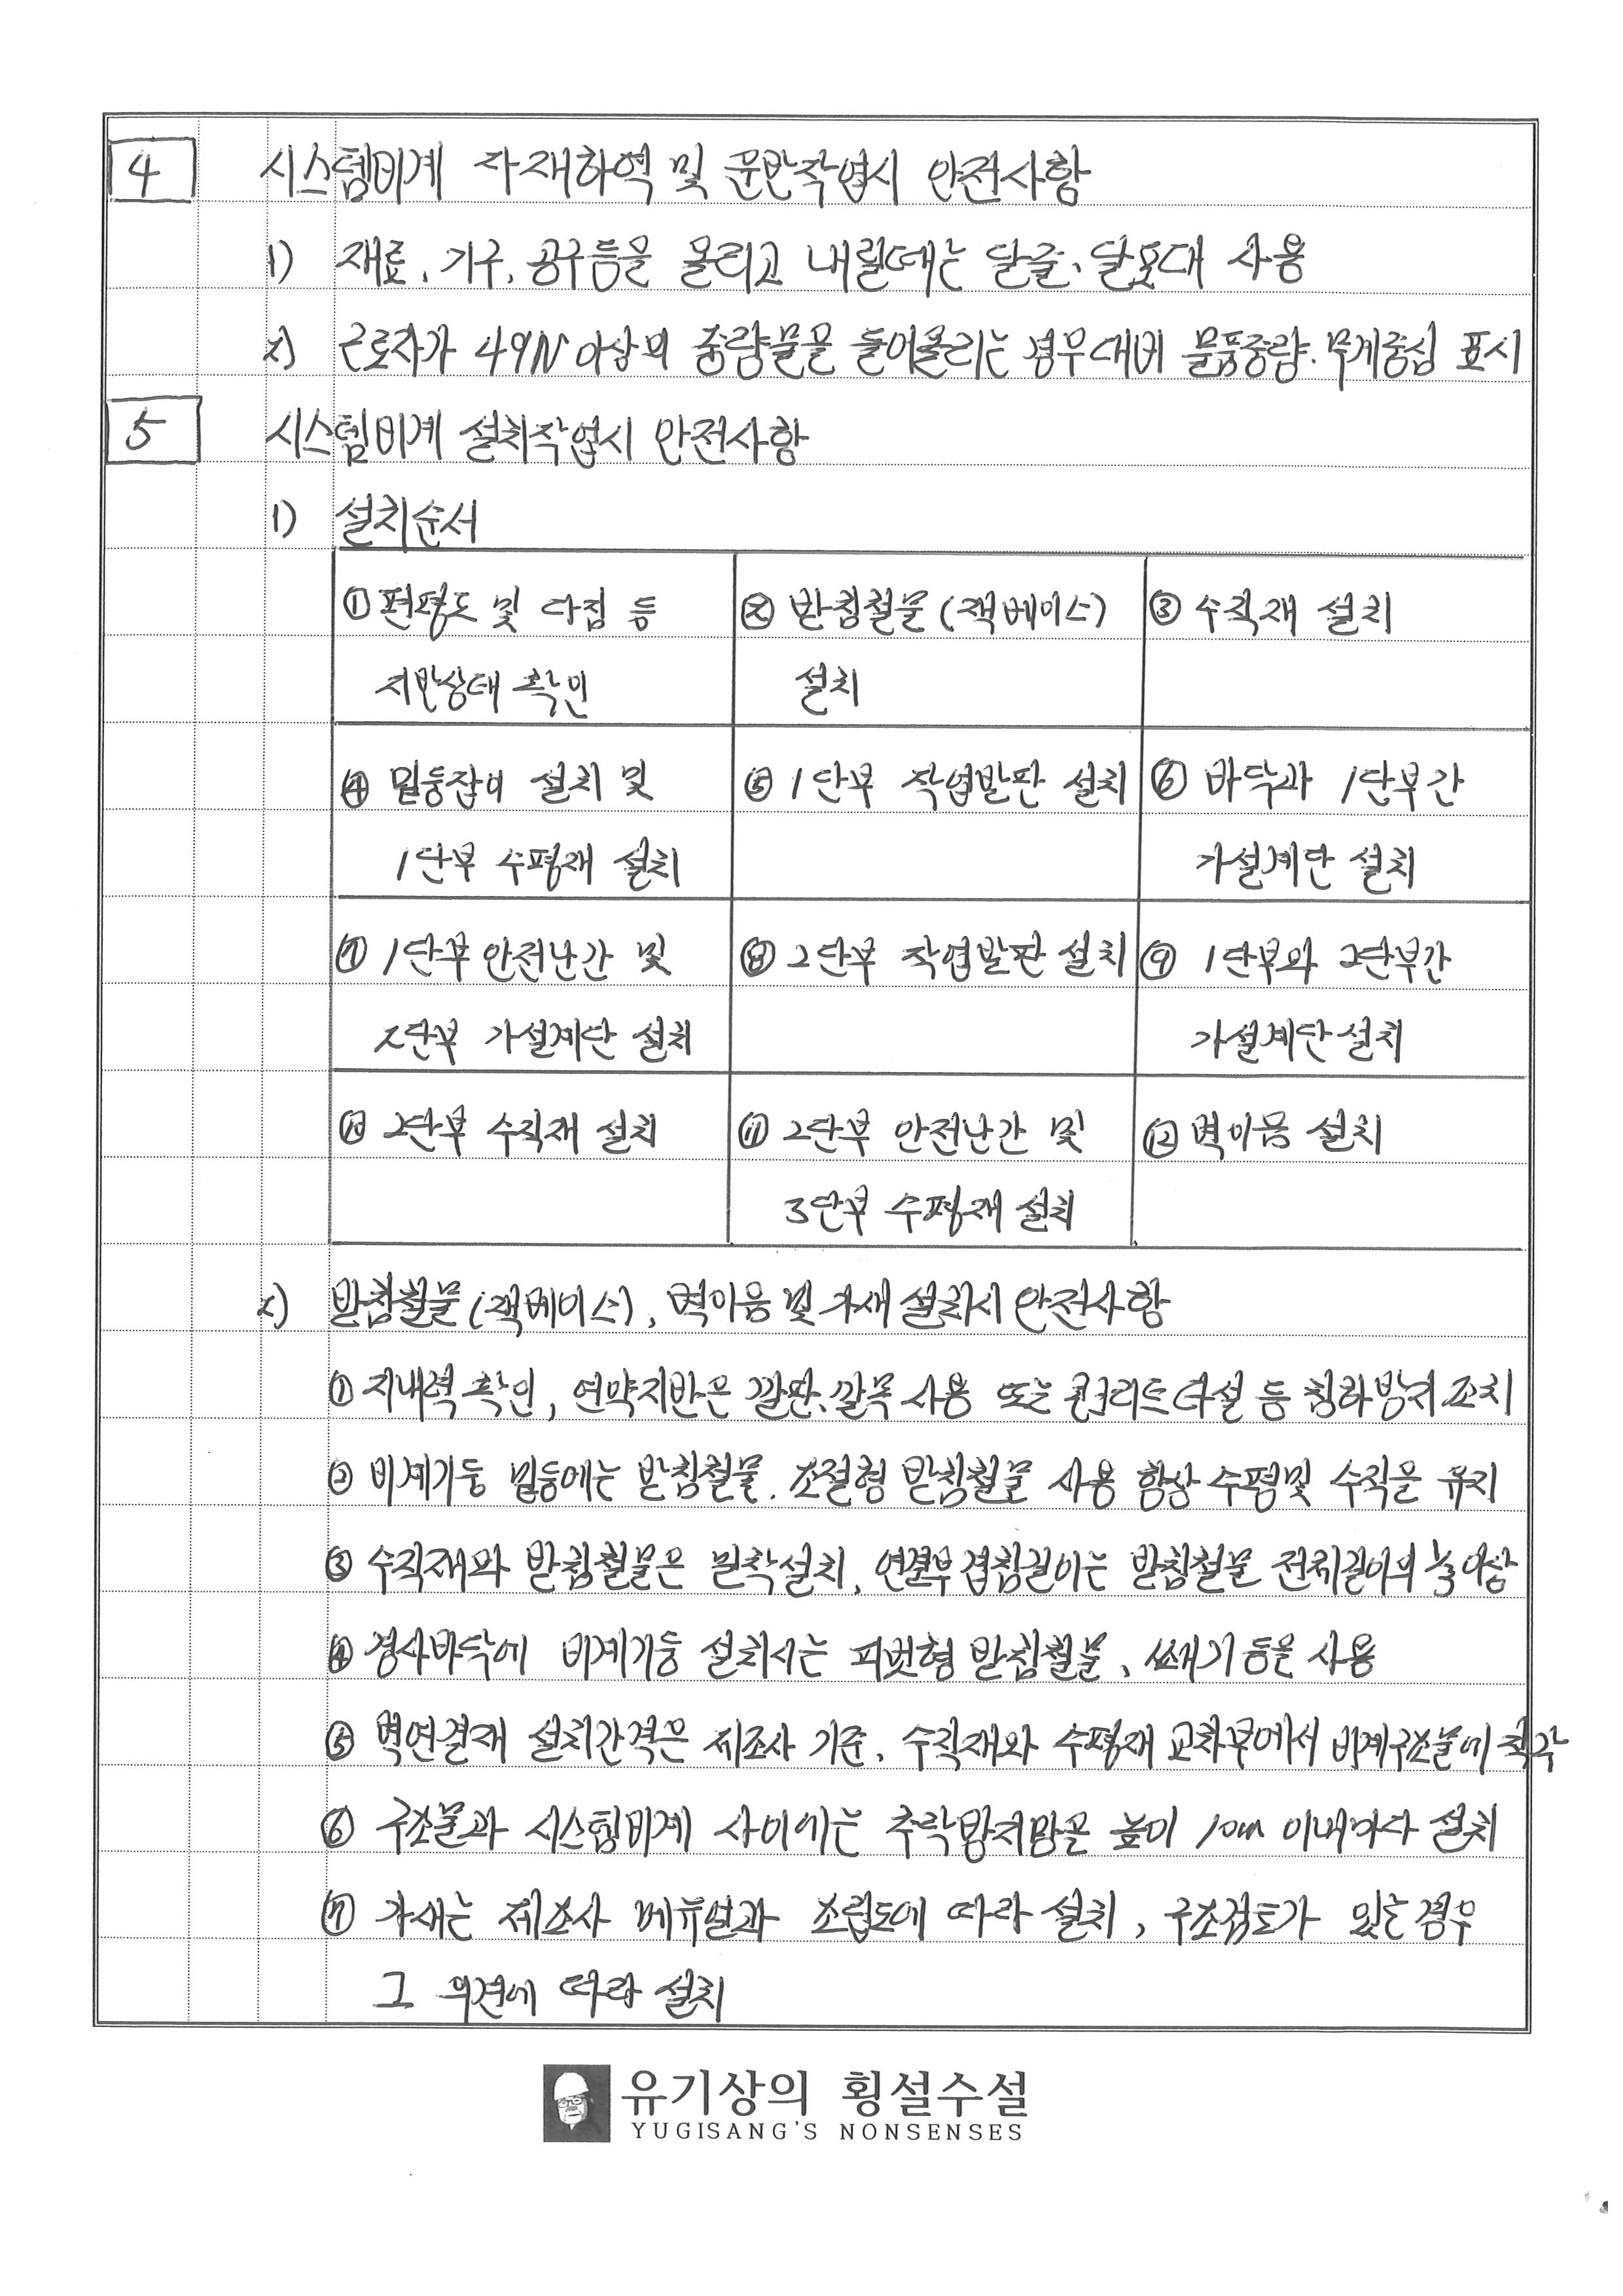 4 시스템비계 자재하역 및 운반작업시 안전사항
1) 재료, 기구, 공구등을 올리고 내릴때는 달줄, 달포대 사용
2) 근로자가 49N 이상의 중량물을 들어올리는 경우 대비 물품중량, 무게중심 표시
5 시스템비계 설치작업시 안전사항
1) 설치순서
① 편평도 및 다짐 등
지반상태 확인
② 받침철물(잭베이스)
설치
③ 수직재 설치
④ 밑둥잡이 설치 및
1단부 수평재 설치
⑤ 1단부 작업발판 설치
⑥ 바닥과 1단부간
가설계단 설치
⑦ 1단부 안전난간 및
2단부 가설계단 설치
⑧ 2단부 작업발판 설치
⑨ 1단부와 2단부간
가설계단 설치
⑩ 2단부 수직재 설치
⑪ 2단부 안전난간 및
3단부 수평재 설치
⑫ 벽이음 설치
2) 받침철물(잭베이스), 벽이음 및 가새 설치시 안전사항
① 지내력 확인, 연약지반은 깔판, 깔목 사용 또는 콘크리트 타설 등 침하방지 조치
② 비계기둥 밑둥에는 받침철물, 조절형 받침철물 사용 항상 수평 및 수직을 유지
③ 수직재와 받침철물은 밀착설치, 연결부 겹침길이는 받침철물 전체길이의 ⅓ 이상
④ 경사바닥에 비계기둥 설치시는 피벗형 받침철물, 쐐기 등을 사용
⑤ 벽연결재 설치간격은 제조사 기준, 수직재와 수평재 교차부에서 비계구조물에 직각
⑥ 구조물과 시스템비계 사이에는 추락방지망을 높이 10m 이내마다 설치
⑦ 가새는 제조사 메뉴얼과 조립도에 따라 설치, 구조검토가 있는 경우
그 의견에 따라 설치
유기상의 횡설수설
YUGISANG'S NONSENSES